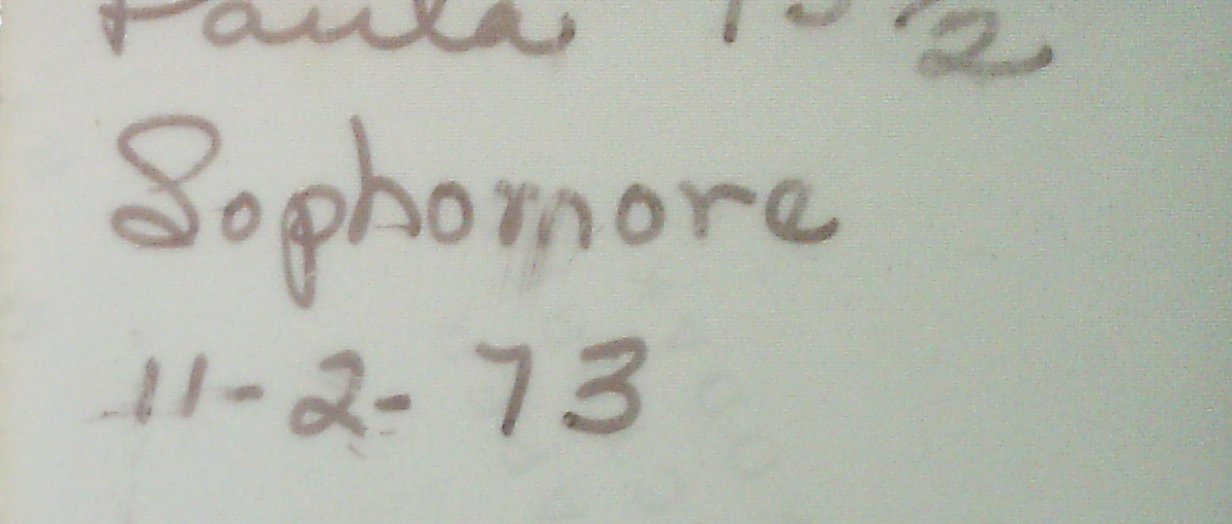 Paula 15 1/2
Sophomore
11-2-73